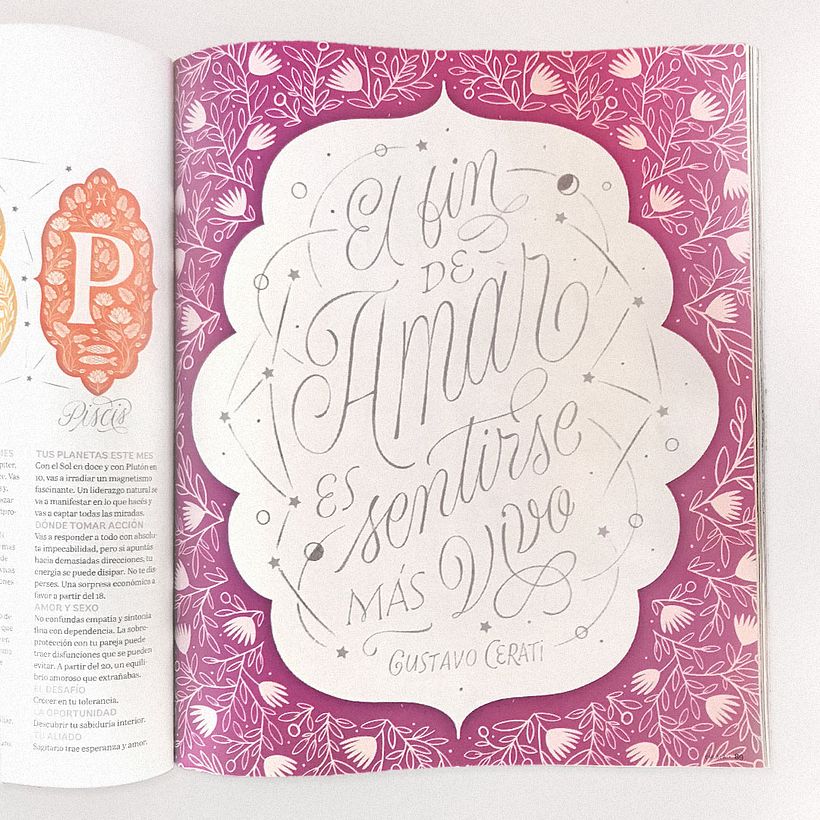 P
Piscis
TUS PLANETAS ESTE MES
Con el Sol en doce y con Plutón en
10, vas a irradiar un magnetismo
fascinante. Un liderazgo natural se
va a manifestar en lo que hacés y
vas a captar todas las miradas.
DÓNDE TOMAR ACCIÓN
Vas a responder a todo con absolu-
ta impecabilidad, pero si apuntás
hacia demasiadas direcciones, tu
energía se puede disipar. No te dis-
perses. Una sorpresa económica a
favor a partir del 18.
AMOR Y SEXO
No confundas empatía y sintonía
fina con dependencia. La sobre-
protección con tu pareja puede
traer disfunciones que se pueden
evitar. A partir del 20, un equili-
brio amoroso que extrañabas.
EL DESAFÍO
Crecer en tu tolerancia.
LA OPORTUNIDAD
Descubrir tu sabiduría interior.
TU ALIADO
Sagitario trae esperanza y amor.
El fin
DE
Amar
ES
sentirse
MÁS Vivo
GUSTAVO CERATI